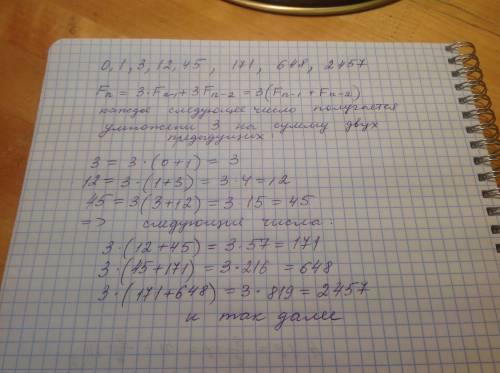 0, 1, 3, 12, 45, 171, 648, 2457
Fn = 3·Fn-1 + 3Fn-2 = 3(Fn-1 + Fn-2)
каждое следующее число получается
умножением 3 на сумму двух
предыдущих
3 = 3·(0+1) = 3
12 = 3·(1+3) = 3·4 = 12
45 = 3(3+12) = 3·15 = 45
=> следующие числа:
3·(12+45) = 3·57 = 171
3·(45+171) = 3·216 = 648
3·(171+648) = 3·819 = 2457
и так далее